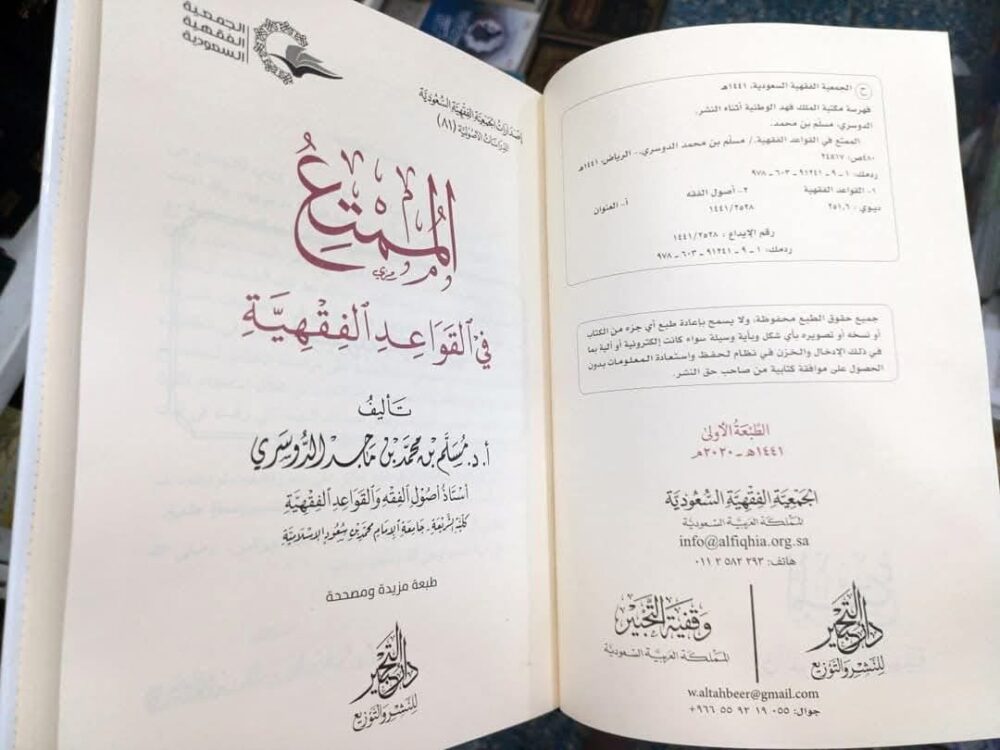 الجمعية
الفقهية
السعودية
إصدارات الجمعية الفقهية السعودية
الدراسات الأصولية (٨١)
المُمْتِعُ
مزي
فِي القَوَاعِدِ الفِقْهِيَّةِ
تأليفُ
أ. د. مُسَلَّم بْن مُحَمَّد بْن مَاجِد الدُّوسَري
أستاذ أصول الفقه والقواعد الفقهية
كلية الشريعة - جامعة الإمام محمد بن سعود الإسلامية
طبعة مزيدة ومصححة
دار التحبير
للنشر والتوزيع
ح الجمعية الفقهية السعودية، ١٤٤١هـ
فهرسة مكتبة الملك فهد الوطنية أثناء النشر.
الدوسري، مسلم بن محمد.
الممتع في القواعد الفقهية. / مسلّم بن محمد الدوسري.- الرياض، ١٤٤١هـ
٤٨٠ص؛ ١٧×٢٤
ردمك: ١ - ٩ - ٩١٢٤١ - ٦٠٣ - ٩٧٨
١- القواعد الفقهية ٢- أصول الفقه أ- العنوان
ديوي : ٢٥١,٦ ١٤٤١/٢٥٢٨
رقم الإيداع : ١٤٤١/٢٥٢٨
ردمك: ١ - ٩ - ٩١٢٤١ - ٦٠٣ - ٩٧٨
جميع حقوق الطبع محفوظة، ولا يسمح بإعادة طبع أي جزء من الكتاب
أو نسخه أو تصويره بأي شكل وبأية وسيلة سواء كانت إلكترونية أو آلية بما
في ذلك الإدخال والخزن في نظام لحفظ واستعادة المعلومات بدون
الحصول على موافقة كتابية من صاحب حق النشر.
الطَّبْعَةُ الأُولَىٰ
١٤٤١هـ - ٢٠٢٠م
الجَمْعِيَّة الفِقْهِيَّة السُّعُودِيَّة
المملكة العربية السعودية
info@alfiqhia.org.sa
هاتف: ٢٩٣ ٥٨٢ ٢ ٠١١
دار التحبير
للنشر والتوزيع
وقفية التحبير
المملكة العربية السعودية
w.altahbeer@gmail.com
جوال: ٠٥٥ ١٩ ٩٣ ٥٥ ٩٦٦+